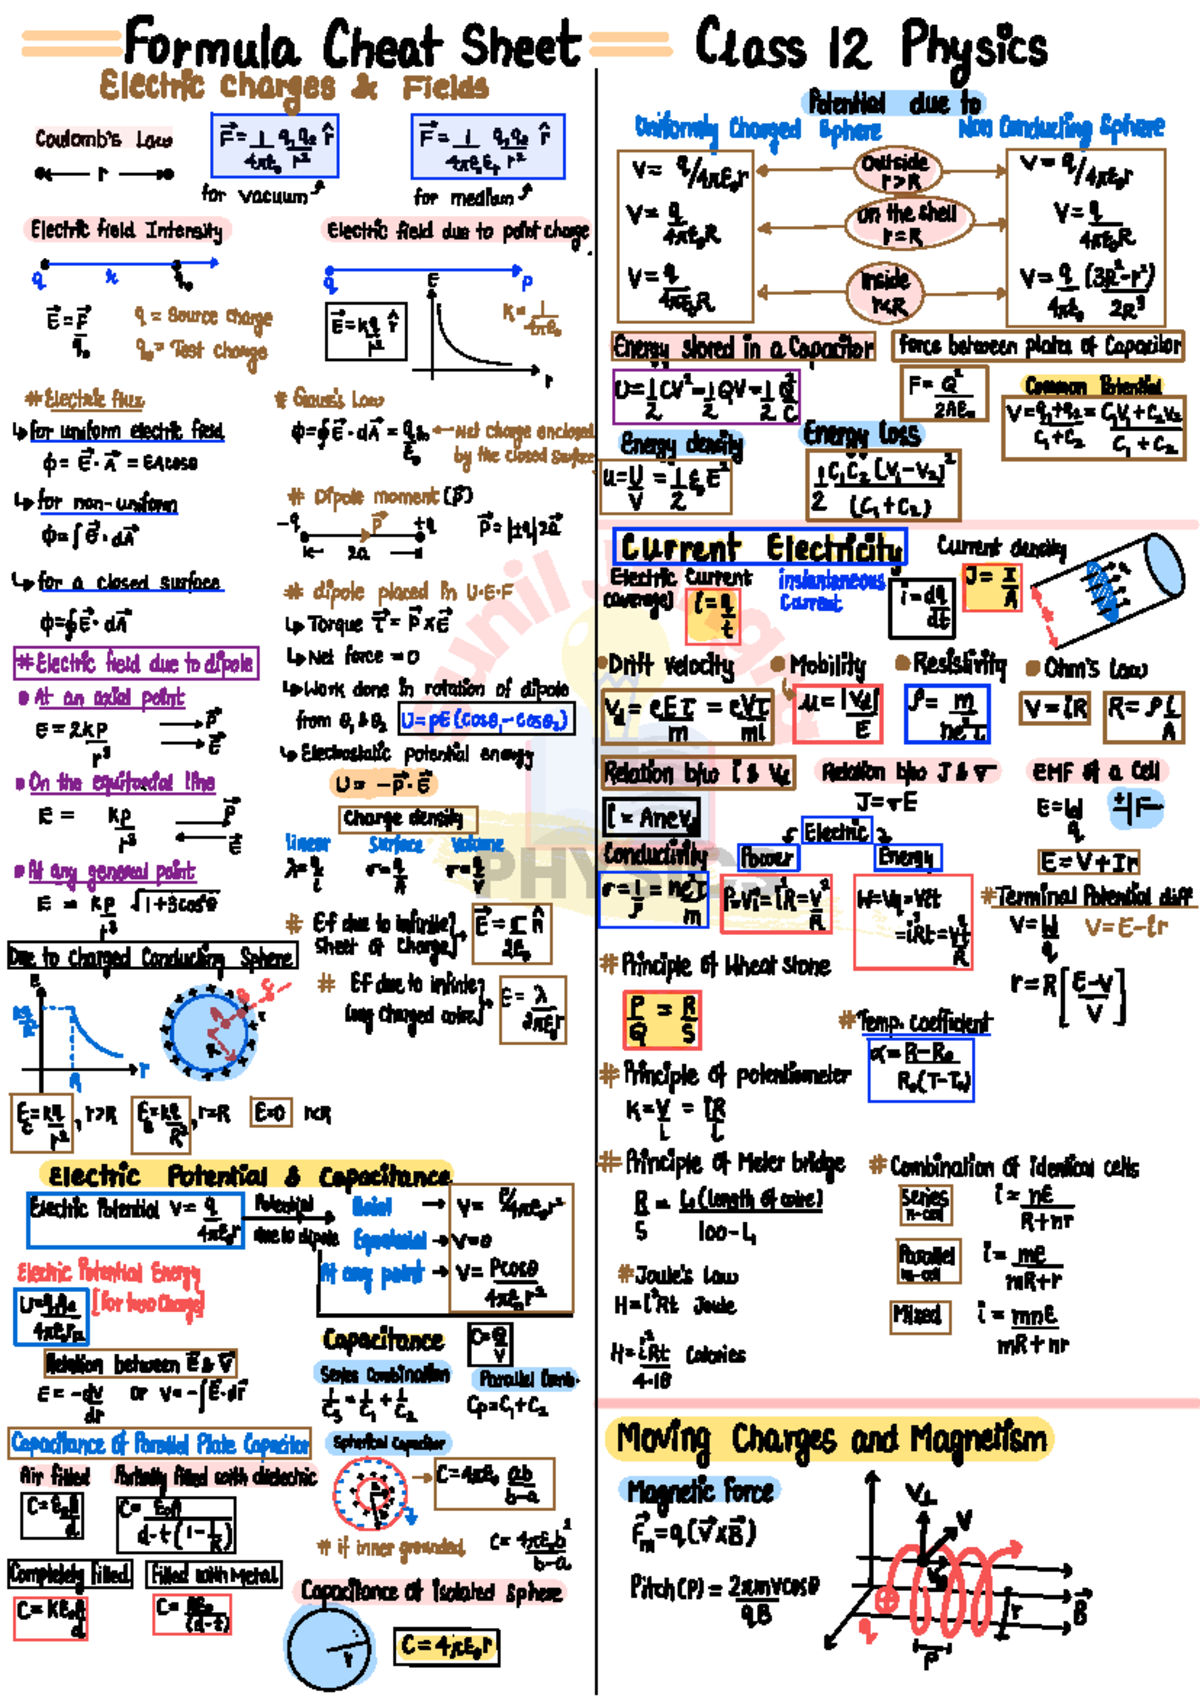 Formula Cheat Sheet
Class 12 Physics
Electric Charges & Fields
Coulomb's Law
r
F = 1/4πε₀ q₁q₂/r² r̂
for vacuum
F = 1/4πε₀εᵣ q₁q₂/r² r̂
for medium
Electric field Intensity
q x q₀
E = F/q₀
q = Source charge
q₀ = Test charge
Electric field due to point charge
q P
E = kq/r² r̂
K = 1/4πε₀
E
r
# Electric flux
↳ for uniform electric field
ϕ = E · A = EAcosθ
↳ for non-uniform
↳ for a closed surface
ϕ = ∮E · dA
# Gauss's Law
ϕ = ∮E · dA = qᵢₙ/ε₀
Net charge enclosed
by the closed surface
# Dipole moment (P)
-q P +q
2a
P = |±q|2a
# dipole placed in U·E·F
↳ Torque τ = P x E
↳ Net force = 0
↳ Work done in rotation of dipole
from θ₁ & θ₂ U = pE(cosθ₁ - cosθ₂)
↳ Electrostatic potential energy
U = -P · E
# Electric field due to dipole
At an axial point
E = 2kp/r³
P
E
On the equitorial line
E = kp/r³
P
E
At any general point
E = kp/r³ √1+3cos²θ
Charge density
linear Surface Volume
λ = q/L σ = q/A σ = q/V
# Ef due to infinite
Sheet of Charge
E = σ/2ε₀ n̂
# Ef due to infinite
long charged wire
E = λ/2πε₀r
Due to charged Conducting Sphere
E
R
r
E = kq/r², r>R
E = kq/R², r=R
E=0 r<R
Electric Potential & Capacitance
Electric Potential V = q/4πε₀r
Potential
due to dipole
Axial → V = P/4πε₀r²
Equatorial → V=0
At any point → V = Pcosθ/4πε₀r²
Electric Potential Energy
[for two Charge]
U = q₁q₂/4πε₀r₁₂
Relation between E & V
E = -dv/dr or V = -∫E·dr
Capacitance
C = Q/V
Series Combination
1/Cs = 1/C₁ + 1/C₂
Parallel Comb.
Cp = C₁ + C₂
Capacitance of Parallel Plate Capacitor
Air filled
C = ε₀A/d
Partially filled with dielectric
C = ε₀A/d-t(1-1/K)
Completely filled
C = Kε₀A/d
Filled with Metal
C = Aε₀/(d-t)
Spherical Capacitor
C = 4πε₀ ab/b-a
# if inner grounded
C = 4πε₀b²/b-a
Capacitance of Isolated Sphere
r
C = 4πε₀r
Potential due to
Uniformly Charged Sphere
Non Conducting Sphere
V = q/4πε₀r
Outside
r>R
V = q/4πε₀r
V = q/4πε₀R
on the shell
r=R
V = q/4πε₀R
V = q/4πε₀R
Inside
r<R
V = q/4πε₀ (3R²-r²)/2R³
Energy stored in a Capacitor
U = 1/2 CV² = 1/2 QV = 1/2 Q²/C
Force between plates of Capacitor
F = Q²/2Aε₀
Common Potential
V = q₁+q₂/C₁+C₂ = C₁V₁+C₂V₂/C₁+C₂
Energy density
u = U/V = 1/2 ε₀E²
Energy loss
1/2 C₁C₂(V₁-V₂)²/(C₁+C₂)
Current Electricity
Electric Current
(average)
i = q/t
instantaneous
Current
i = dq/dt
Current density
J = I/A
Drift velocity
Vd = eEτ/m = eVτ/ml
Mobility
μ = |Vd|/E
Resistivity
ρ = m/ne²τ
Ohm's law
V = iR
R = ρ l/A
Relation b/w i & Vd
i = AneVd
Relation b/w J & σ
J = σE
EMF of a Cell
E = W/q
E = V + Ir
Conductivity
σ = 1/ρ = ne²τ/m
Electric
Power
P = Vi = i²R = V²/R
Energy
W = Vq = Vit
= i²Rt = V²t/R
# Terminal Potential diff
V = W/q V = E - ir
r = R[E-V/V]
# Principle of Wheat stone
P/Q = R/S
# Temp. coefficient
α = R-R₀/R₀(T-T₀)
# Principle of potentiometer
K = V/L = IR/L
# Principle of Meter bridge
R/S = L₁(length of wire)/100-L₁
# Joule's Law
H = i²Rt Joule
H = i²Rt/4.18 Calories
# Combination of identical cells
Series
n-cell
i = nE/R+nr
Parallel
m-cell
i = mE/mR+r
Mixed
i = mnE/mR+nr
Moving Charges and Magnetism
Magnetic force
Fm = q(V×B)
Pitch (P) = 2πmvcosθ/qB
V⊥
V
B
r
q
P
PHYSICS